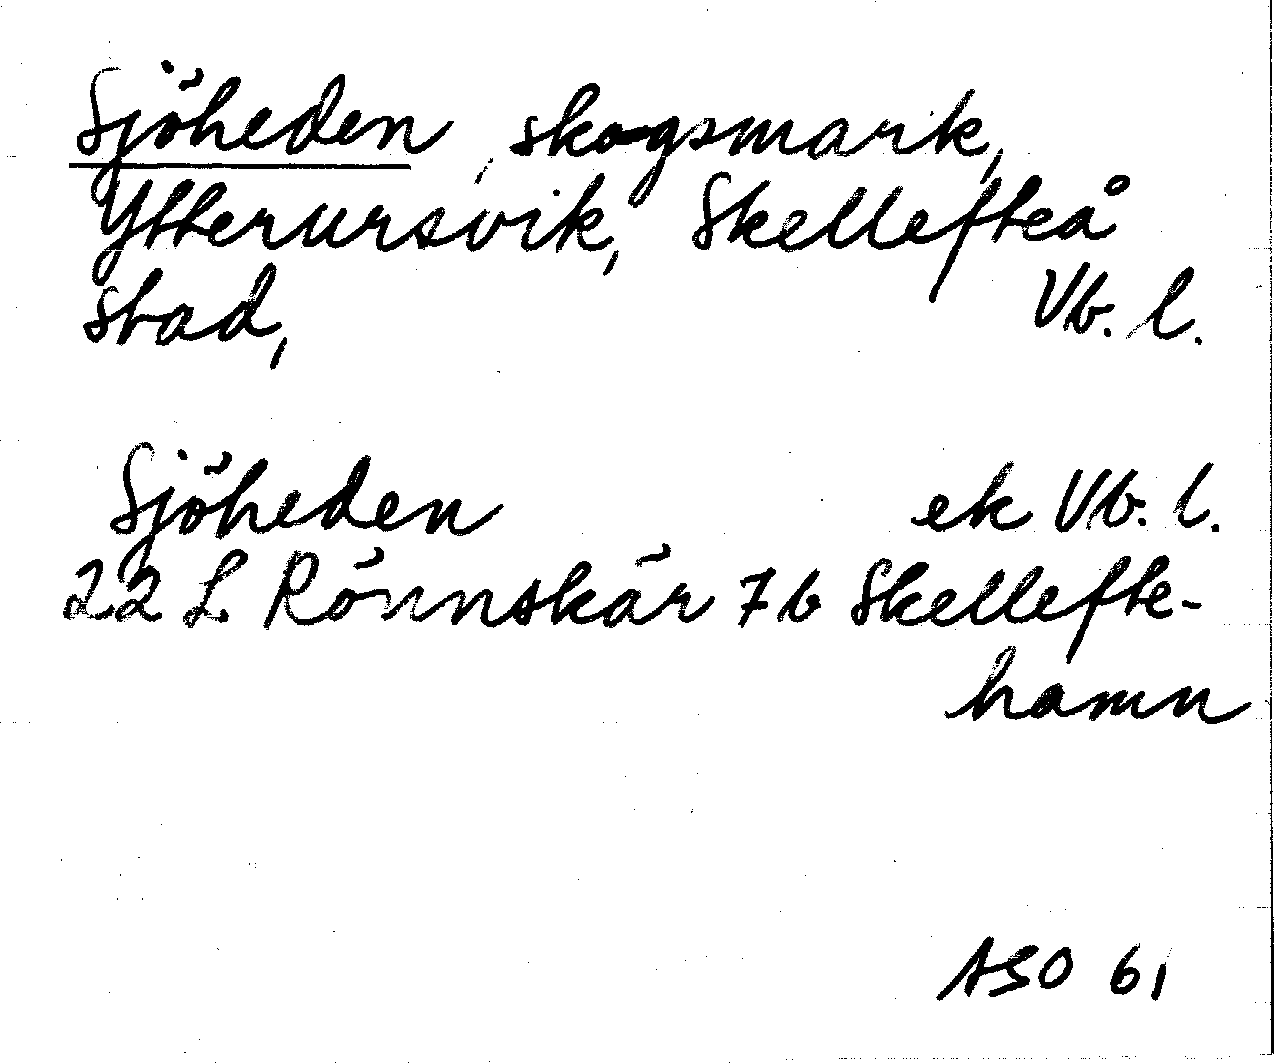 Sjöheden, skogsmark,
Ytterursvik, Skellefteå
stad, Vb. l.
Sjöheden ek Vb. l.
22 L Rönnskär 7b Skellefte-
hamn
ASO 61